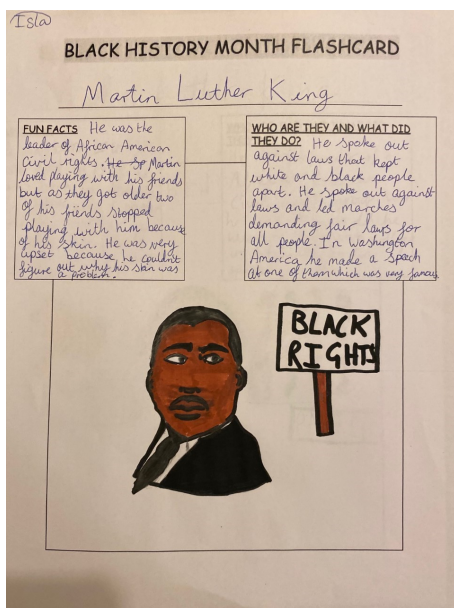 Isla
BLACK HISTORY MONTH FLASHCARD
Martin Luther King
FUN FACTS He was the
leader of African American
Civil rights. He sp Martin
loved playing with his friends
but as they got older two
of his friends stopped
playing with him because
of his skin. He was very
upset because he couldn't
figure out why his skin was
a problem.
WHO ARE THEY AND WHAT DID
THEY DO? He spoke out
against laws that kept
white and black people
apart. He spoke out against
laws and led marches
demanding fair laws for
all people. In Washington
America he made a speach
at one of them which was very famous
BLACK
RIGHTS